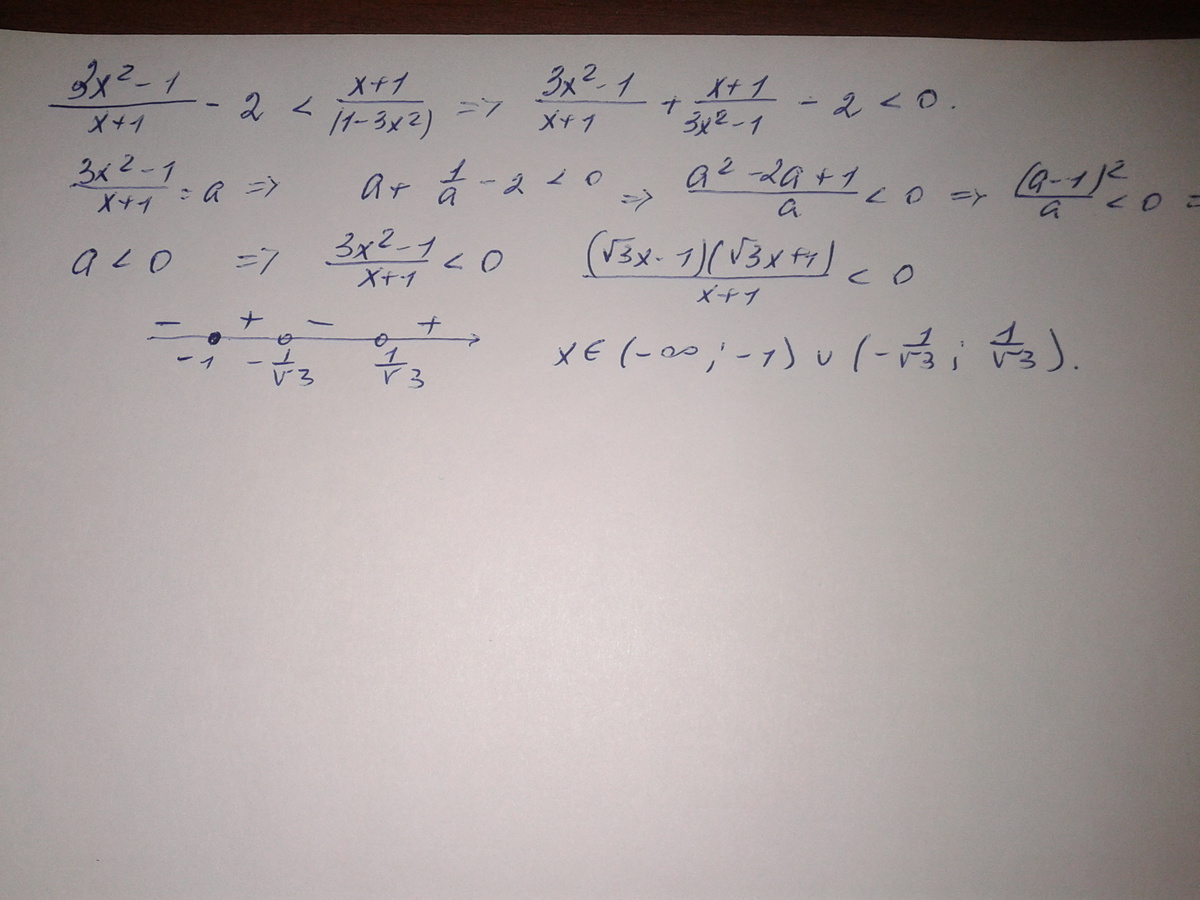 (3x² - 1)/(x+1) - 2 < (x+1)/(1-3x²) => (3x² - 1)/(x+1) + (x+1)/(3x²-1) - 2 < 0.
(3x² - 1)/(x+1) = a => a + 1/a - 2 < 0 => (a² - 2a + 1)/a < 0 => (a-1)²/a < 0 =
a < 0 => (3x² - 1)/(x+1) < 0 (√3x - 1)(√3x + 1)/(x+1) < 0
- + - +
-1 -1/√3 1/√3 x ∈ (-∞; -1) ∪ (-1/√3; 1/√3).